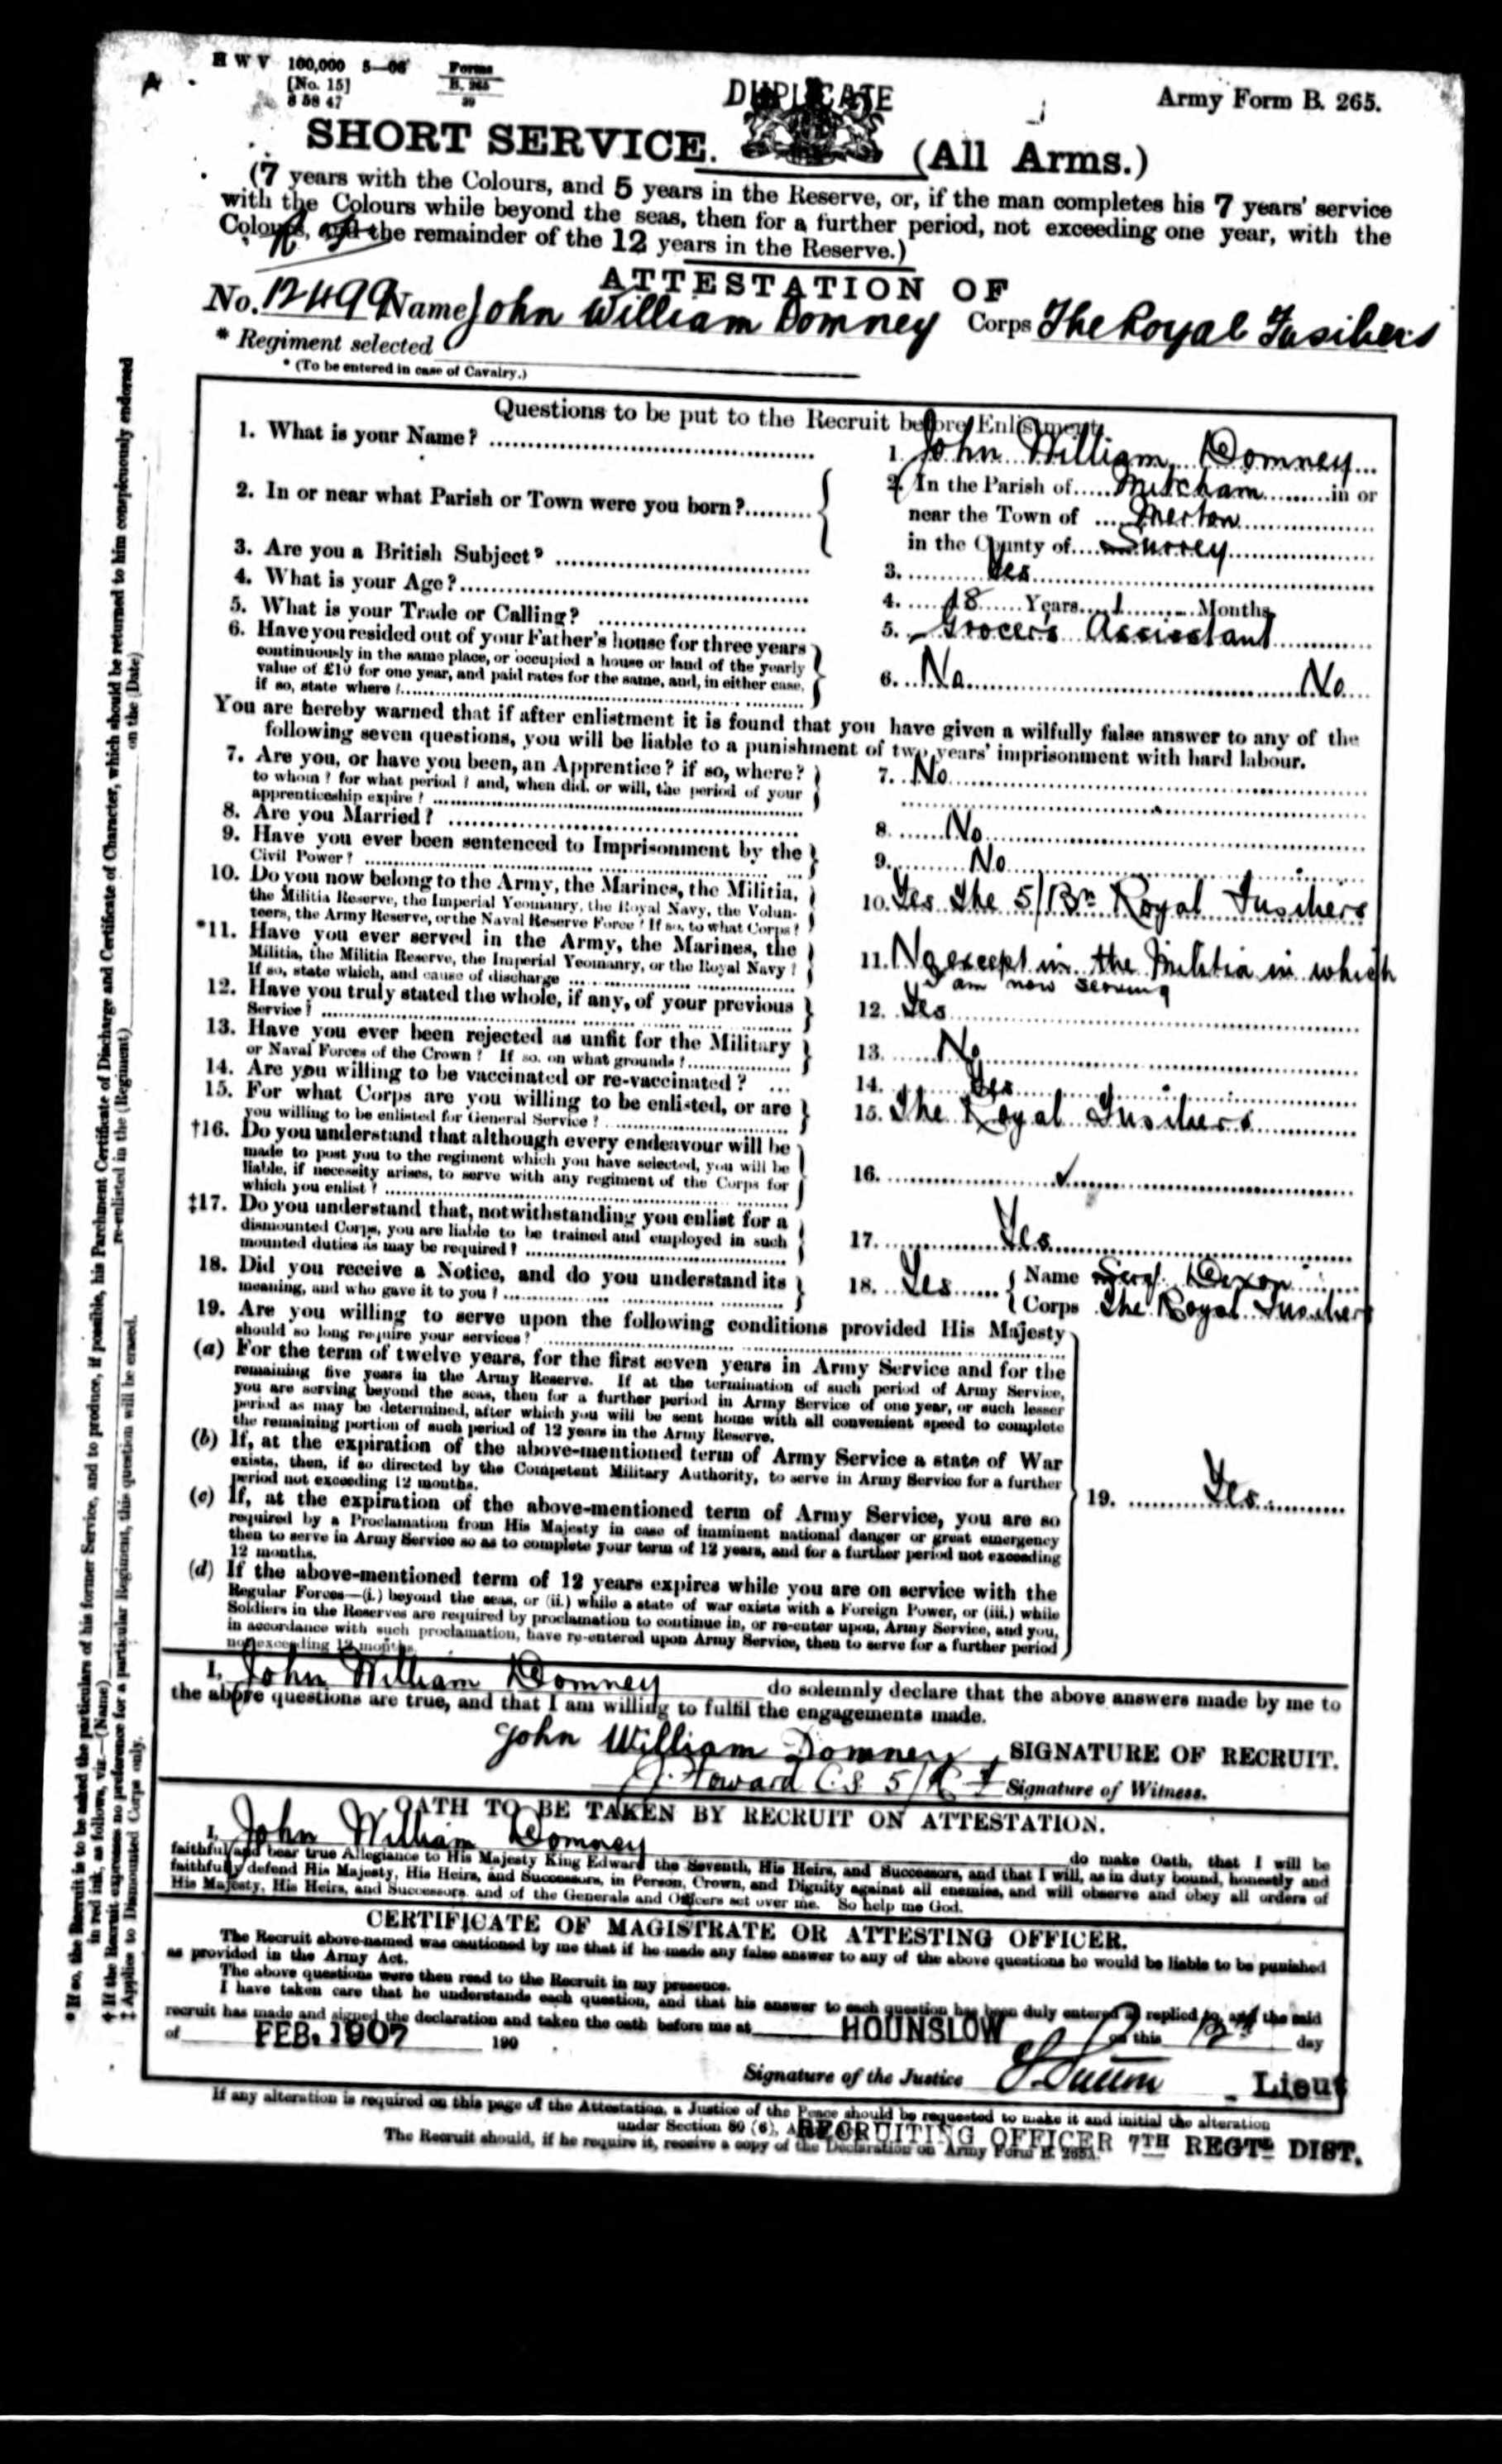 H W V 100,000 5—06 Forms
[No. 15] B. 265
8 58 47 39
DUPLICATE
Army Form B. 265.
SHORT SERVICE. (All Arms.)
(7 years with the Colours, and 5 years in the Reserve, or, if the man completes his 7 years' service
with the Colours while beyond the seas, then for a further period, not exceeding one year, with the
Colours, and the remainder of the 12 years in the Reserve.)
ATTESTATION OF
No. 12499 Name John William Domney Corps The Royal Fusiliers
* Regiment selected
* (To be entered in case of Cavalry.)
Questions to be put to the Recruit before Enlistment.
1. What is your Name? 1. John William Domney
2. In or near what Parish or Town were you born? 2. In the Parish of Mitcham in or
near the Town of Merton
in the County of Surrey
3. Are you a British Subject? 3. Yes
4. What is your Age? 4. 18 Years 1 Months
5. What is your Trade or Calling? 5. Grocers Assistant
6. Have you resided out of your Father's house for three years
continuously in the same place, or occupied a house or land of the yearly
value of £10 for one year, and paid rates for the same, and, in either case,
if so, state where? 6. No No
You are hereby warned that if after enlistment it is found that you have given a wilfully false answer to any of the
following seven questions, you will be liable to a punishment of two years' imprisonment with hard labour.
7. Are you, or have you been, an Apprentice? if so, where?
to whom? for what period? and, when did, or will, the period of your
apprenticeship expire? 7. No
8. Are you Married? 8. No
9. Have you ever been sentenced to Imprisonment by the
Civil Power? 9. No
10. Do you now belong to the Army, the Marines, the Militia,
the Militia Reserve, the Imperial Yeomanry, the Royal Navy, the Volun-
teers, the Army Reserve, or the Naval Reserve Force? If so, to what Corps? 10. Yes The 5/Bn Royal Fusiliers
*11. Have you ever served in the Army, the Marines, the
Militia, the Militia Reserve, the Imperial Yeomanry, or the Royal Navy?
If so, state which, and cause of discharge 11. No except in the Militia in which
I am now serving
12. Have you truly stated the whole, if any, of your previous
Service? 12. Yes
13. Have you ever been rejected as unfit for the Military
or Naval Forces of the Crown? If so, on what grounds? 13. No
14. Are you willing to be vaccinated or re-vaccinated? 14. Yes
15. For what Corps are you willing to be enlisted, or are
you willing to be enlisted for General Service? 15. The Royal Fusiliers
†16. Do you understand that although every endeavour will be
made to post you to the regiment which you have selected, you will be
liable, if necessity arises, to serve with any regiment of the Corps for
which you enlist? 16. ✓
‡17. Do you understand that, notwithstanding you enlist for a
dismounted Corps, you are liable to be trained and employed in such
mounted duties as may be required? 17. Yes
18. Did you receive a Notice, and do you understand its
meaning, and who gave it to you? 18. Yes Name Sergt Dixon
Corps The Royal Fusiliers
19. Are you willing to serve upon the following conditions provided His Majesty
should so long require your services?
(a) For the term of twelve years, for the first seven years in Army Service and for the
remaining five years in the Army Reserve. If at the termination of such period of Army Service,
you are serving beyond the seas, then for a further period in Army Service of one year, or such lesser
period as may be determined, after which you will be sent home with all convenient speed to complete
the remaining portion of such period of 12 years in the Army Reserve.
(b) If, at the expiration of the above-mentioned term of Army Service a state of War
exists, then, if so directed by the Competent Military Authority, to serve in Army Service for a further
period not exceeding 12 months.
(c) If, at the expiration of the above-mentioned term of Army Service, you are so
required by a Proclamation from His Majesty in case of imminent national danger or great emergency
then to serve in Army Service so as to complete your term of 12 years, and for a further period not exceeding
12 months.
(d) If the above-mentioned term of 12 years expires while you are on service with the
Regular Forces—(i.) beyond the seas, or (ii.) while a state of war exists with a Foreign Power, or (iii.) while
Soldiers in the Reserves are required by proclamation to continue in, or re-enter upon, Army Service, and you,
in accordance with such proclamation, have re-entered upon Army Service, then to serve for a further period
not exceeding 12 months.
19. Yes
I, John William Domney do solemnly declare that the above answers made by me to
the above questions are true, and that I am willing to fulfil the engagements made.
John William Domney SIGNATURE OF RECRUIT.
J. Howard C.S. 5/ Signature of Witness.
OATH TO BE TAKEN BY RECRUIT ON ATTESTATION.
I, John William Domney do make Oath, that I will be
faithful and bear true Allegiance to His Majesty King Edward the Seventh, His Heirs, and Successors, and that I will, as in duty bound, honestly and
faithfully defend His Majesty, His Heirs, and Successors, in Person, Crown, and Dignity against all enemies, and will observe and obey all orders of
His Majesty, His Heirs, and Successors, and of the Generals and Officers set over me. So help me God.
CERTIFICATE OF MAGISTRATE OR ATTESTING OFFICER.
The Recruit above-named was cautioned by me that if he made any false answer to any of the above questions he would be liable to be punished
as provided in the Army Act.
The above questions were then read to the Recruit in my presence.
I have taken care that he understands each question, and that his answer to each question has been duly entered as replied to, and the said
recruit has made and signed the declaration and taken the oath before me at HOUNSLOW on this 12th day
of FEB. 1907 190
Signature of the Justice Lieut
If any alteration is required on this page of the Attestation, a Justice of the Peace should be requested to make it and initial the alteration
under Section 80 (6),
RECRUITING OFFICER 7TH REGTL DIST.
The Recruit should, if he require it, receive a copy of the Declaration on Army Form B. 265A.
* If so, the Recruit is to be asked the particulars of his former Service, and to produce, if possible, his Parchment Certificate of Discharge and Certificate of Character, which should be returned to him conspicuously endorsed
in red ink, as follows, viz.—(Name) re-enlisted in the (Regiment) on the (Date)
† If the Recruit expresses no preference for a particular Regiment, this question will be erased.
‡ Applies to Dismounted Corps only.